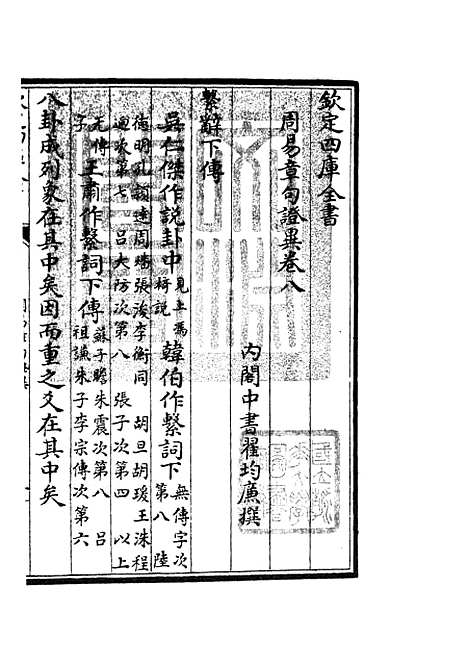 欽定四庫全書
周易章句證異卷八
內閣中書翟均廉撰
繫辭下傳
吳仁傑作說卦中見上為韓伯作繫詞下無傳字次第八 陸
德明孔穎達周張浚李衡同 胡旦胡瑗王洙程
迥次第七 呂大防次第八 張子次第四 以上
无傳王肅作繫詞下傳蘇子瞻朱震次第八 呂
子祖謙朱子李宗傳次第六
八卦成列象在其中矣因而重之爻在其中矣